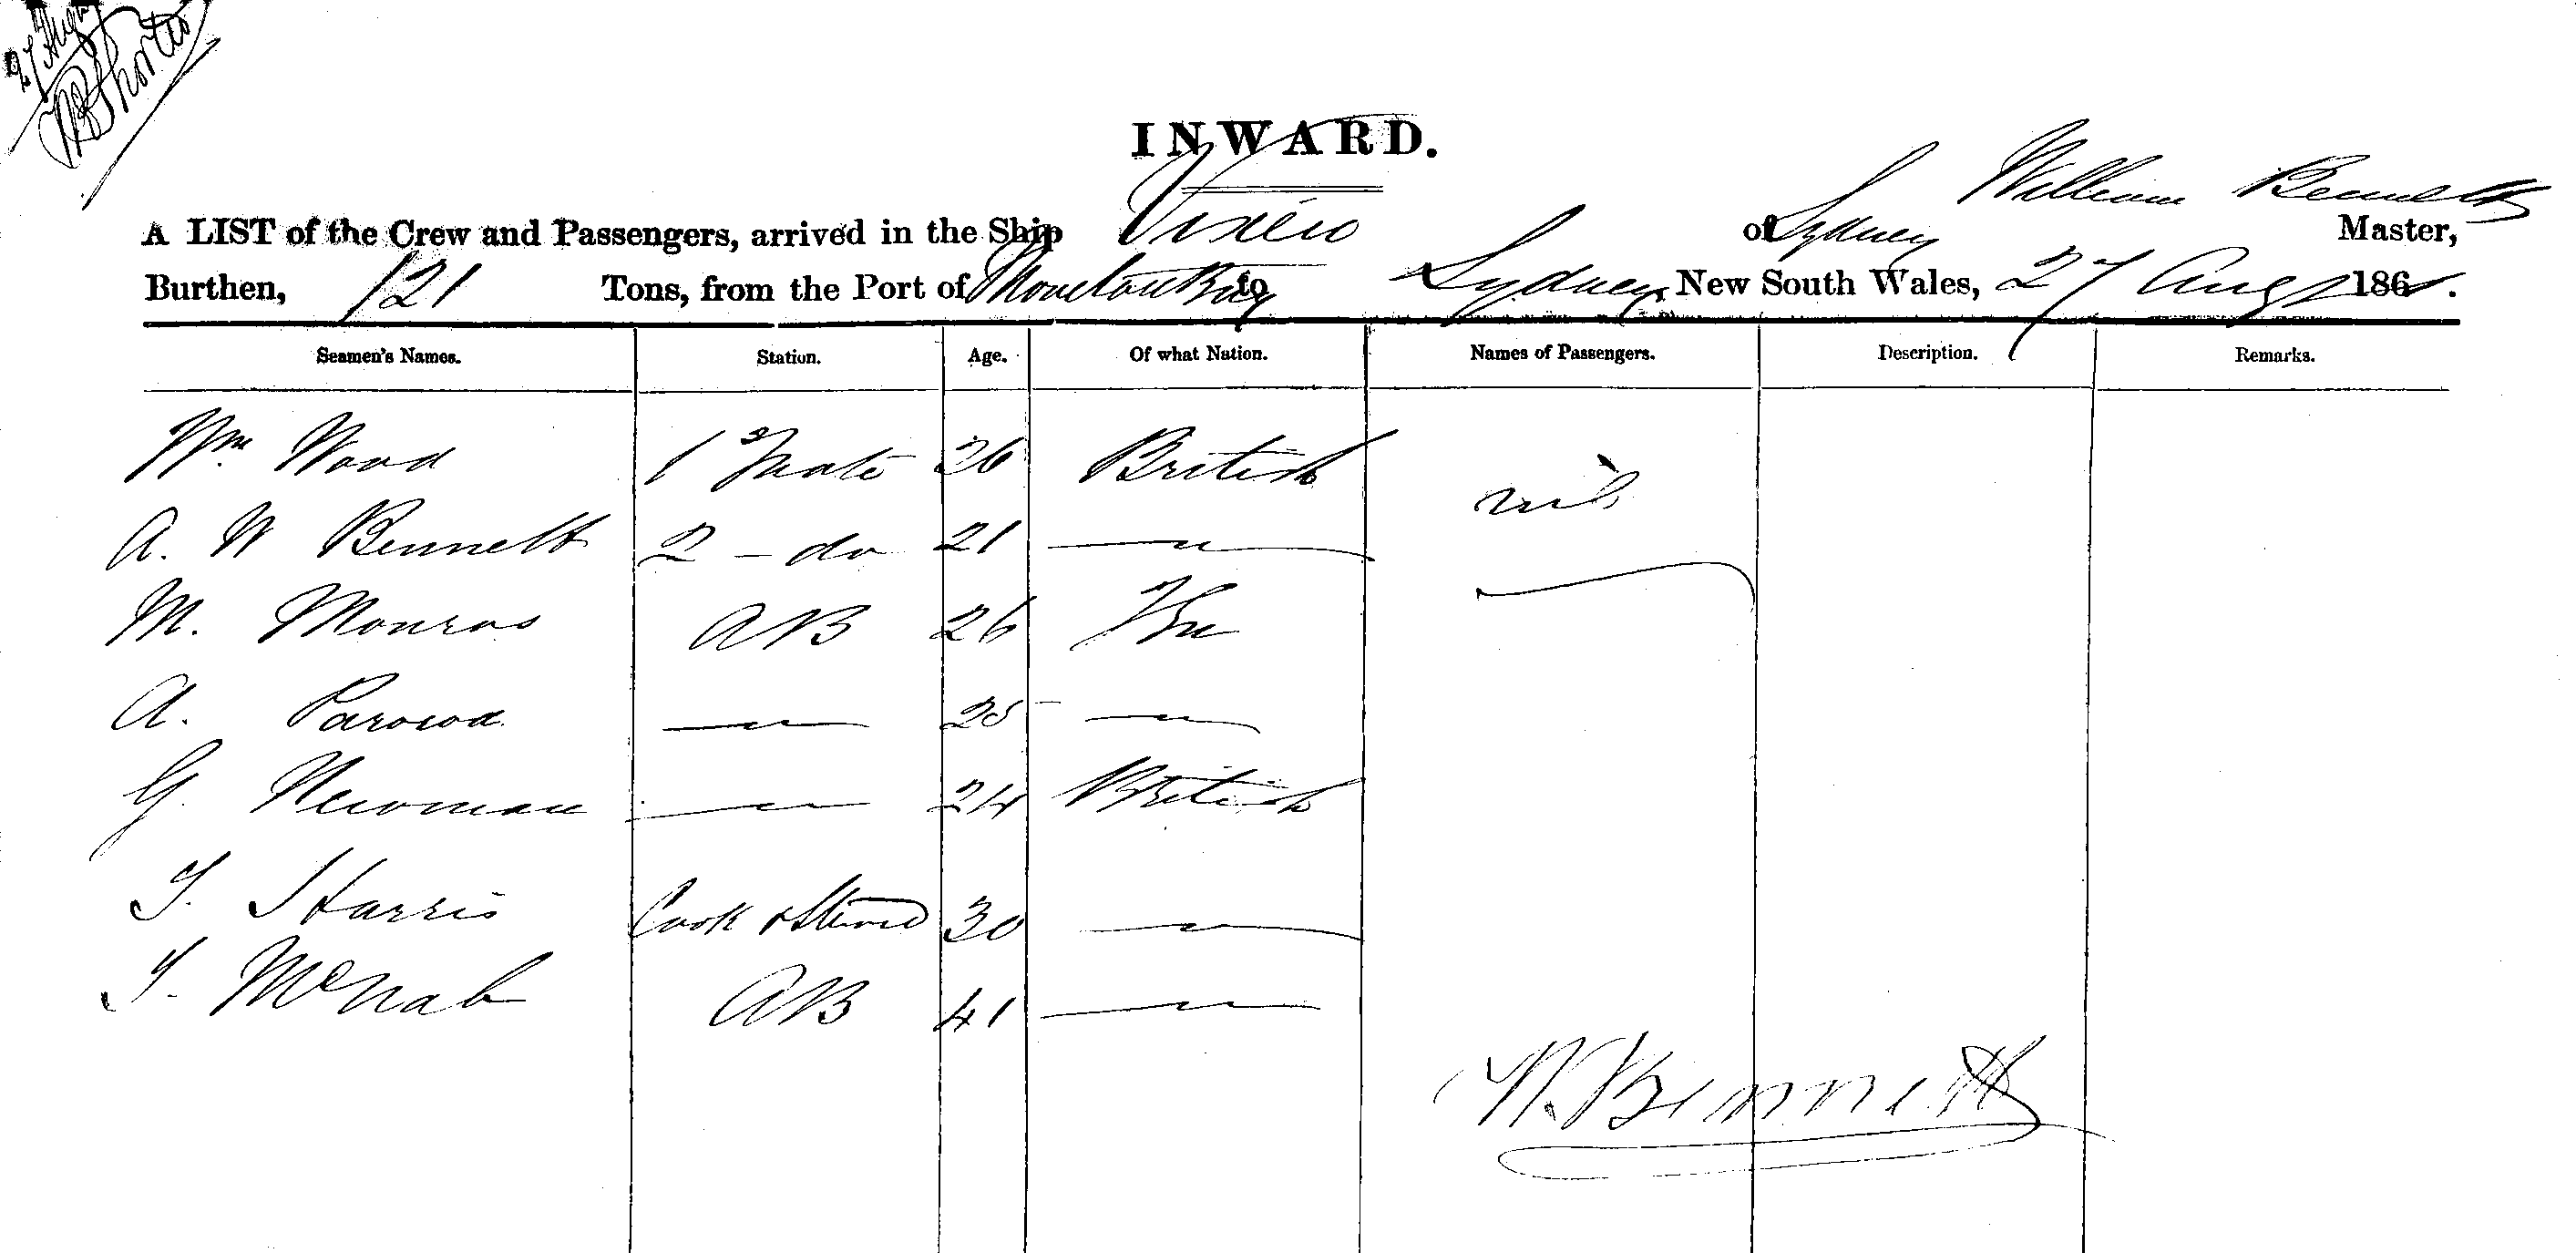 27 Aug
INWARD.
William Bennett
A LIST of the Crew and Passengers, arrived in the Ship Vixen of Sydney Master,
Burthen, 121 Tons, from the Port of Moreton Bay to Sydney, New South Wales, 27 Augt 186
Seamen's Names. Station. Age. Of what Nation. Names of Passengers. Description. Remarks.
Wm Wood 1st Mate 26 British nil
A. W Bennett 2 - do 21 — " —
M. Monroe AB 26
A. — " — 25 — " —
G. Newman — " — 24 British
T. Harris Cook & Steward 30 — " —
T. McNab AB 41 — " —
W. Bennett